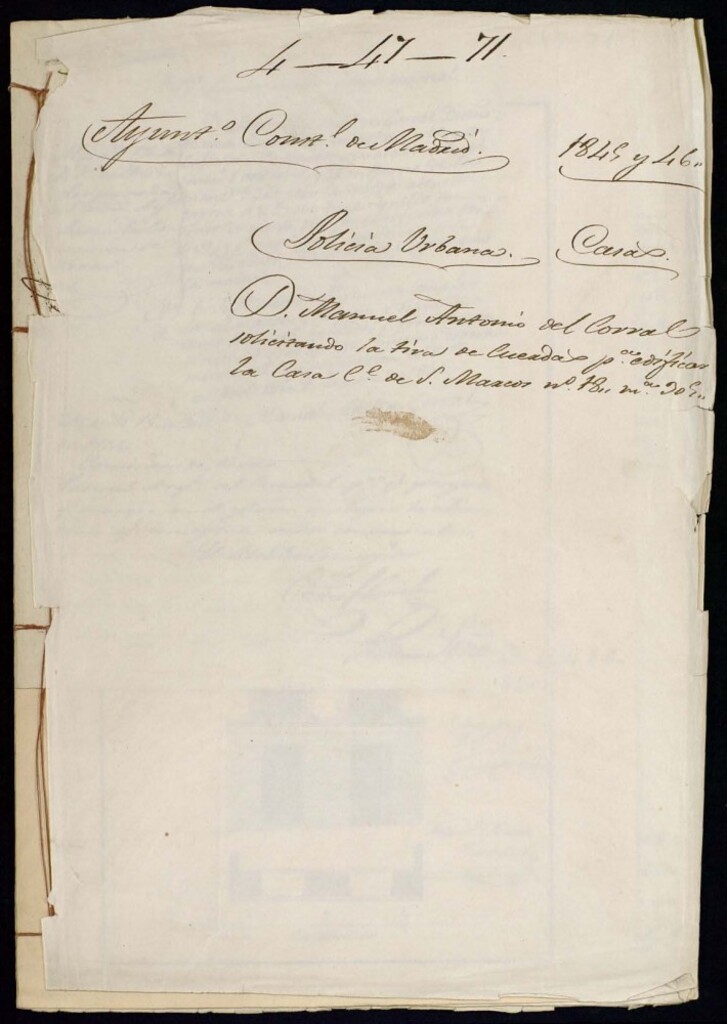 4–47–71.
Ayunt.º Const.l de Madrid. 1845 y 46„
Policia Urbana. Casas.
D. Manuel Antonio del Corral
solicitando la tira de Cuerdas p.ª edificar
la Casa C.e de S. Marcos nº. 18„ m.na 305„